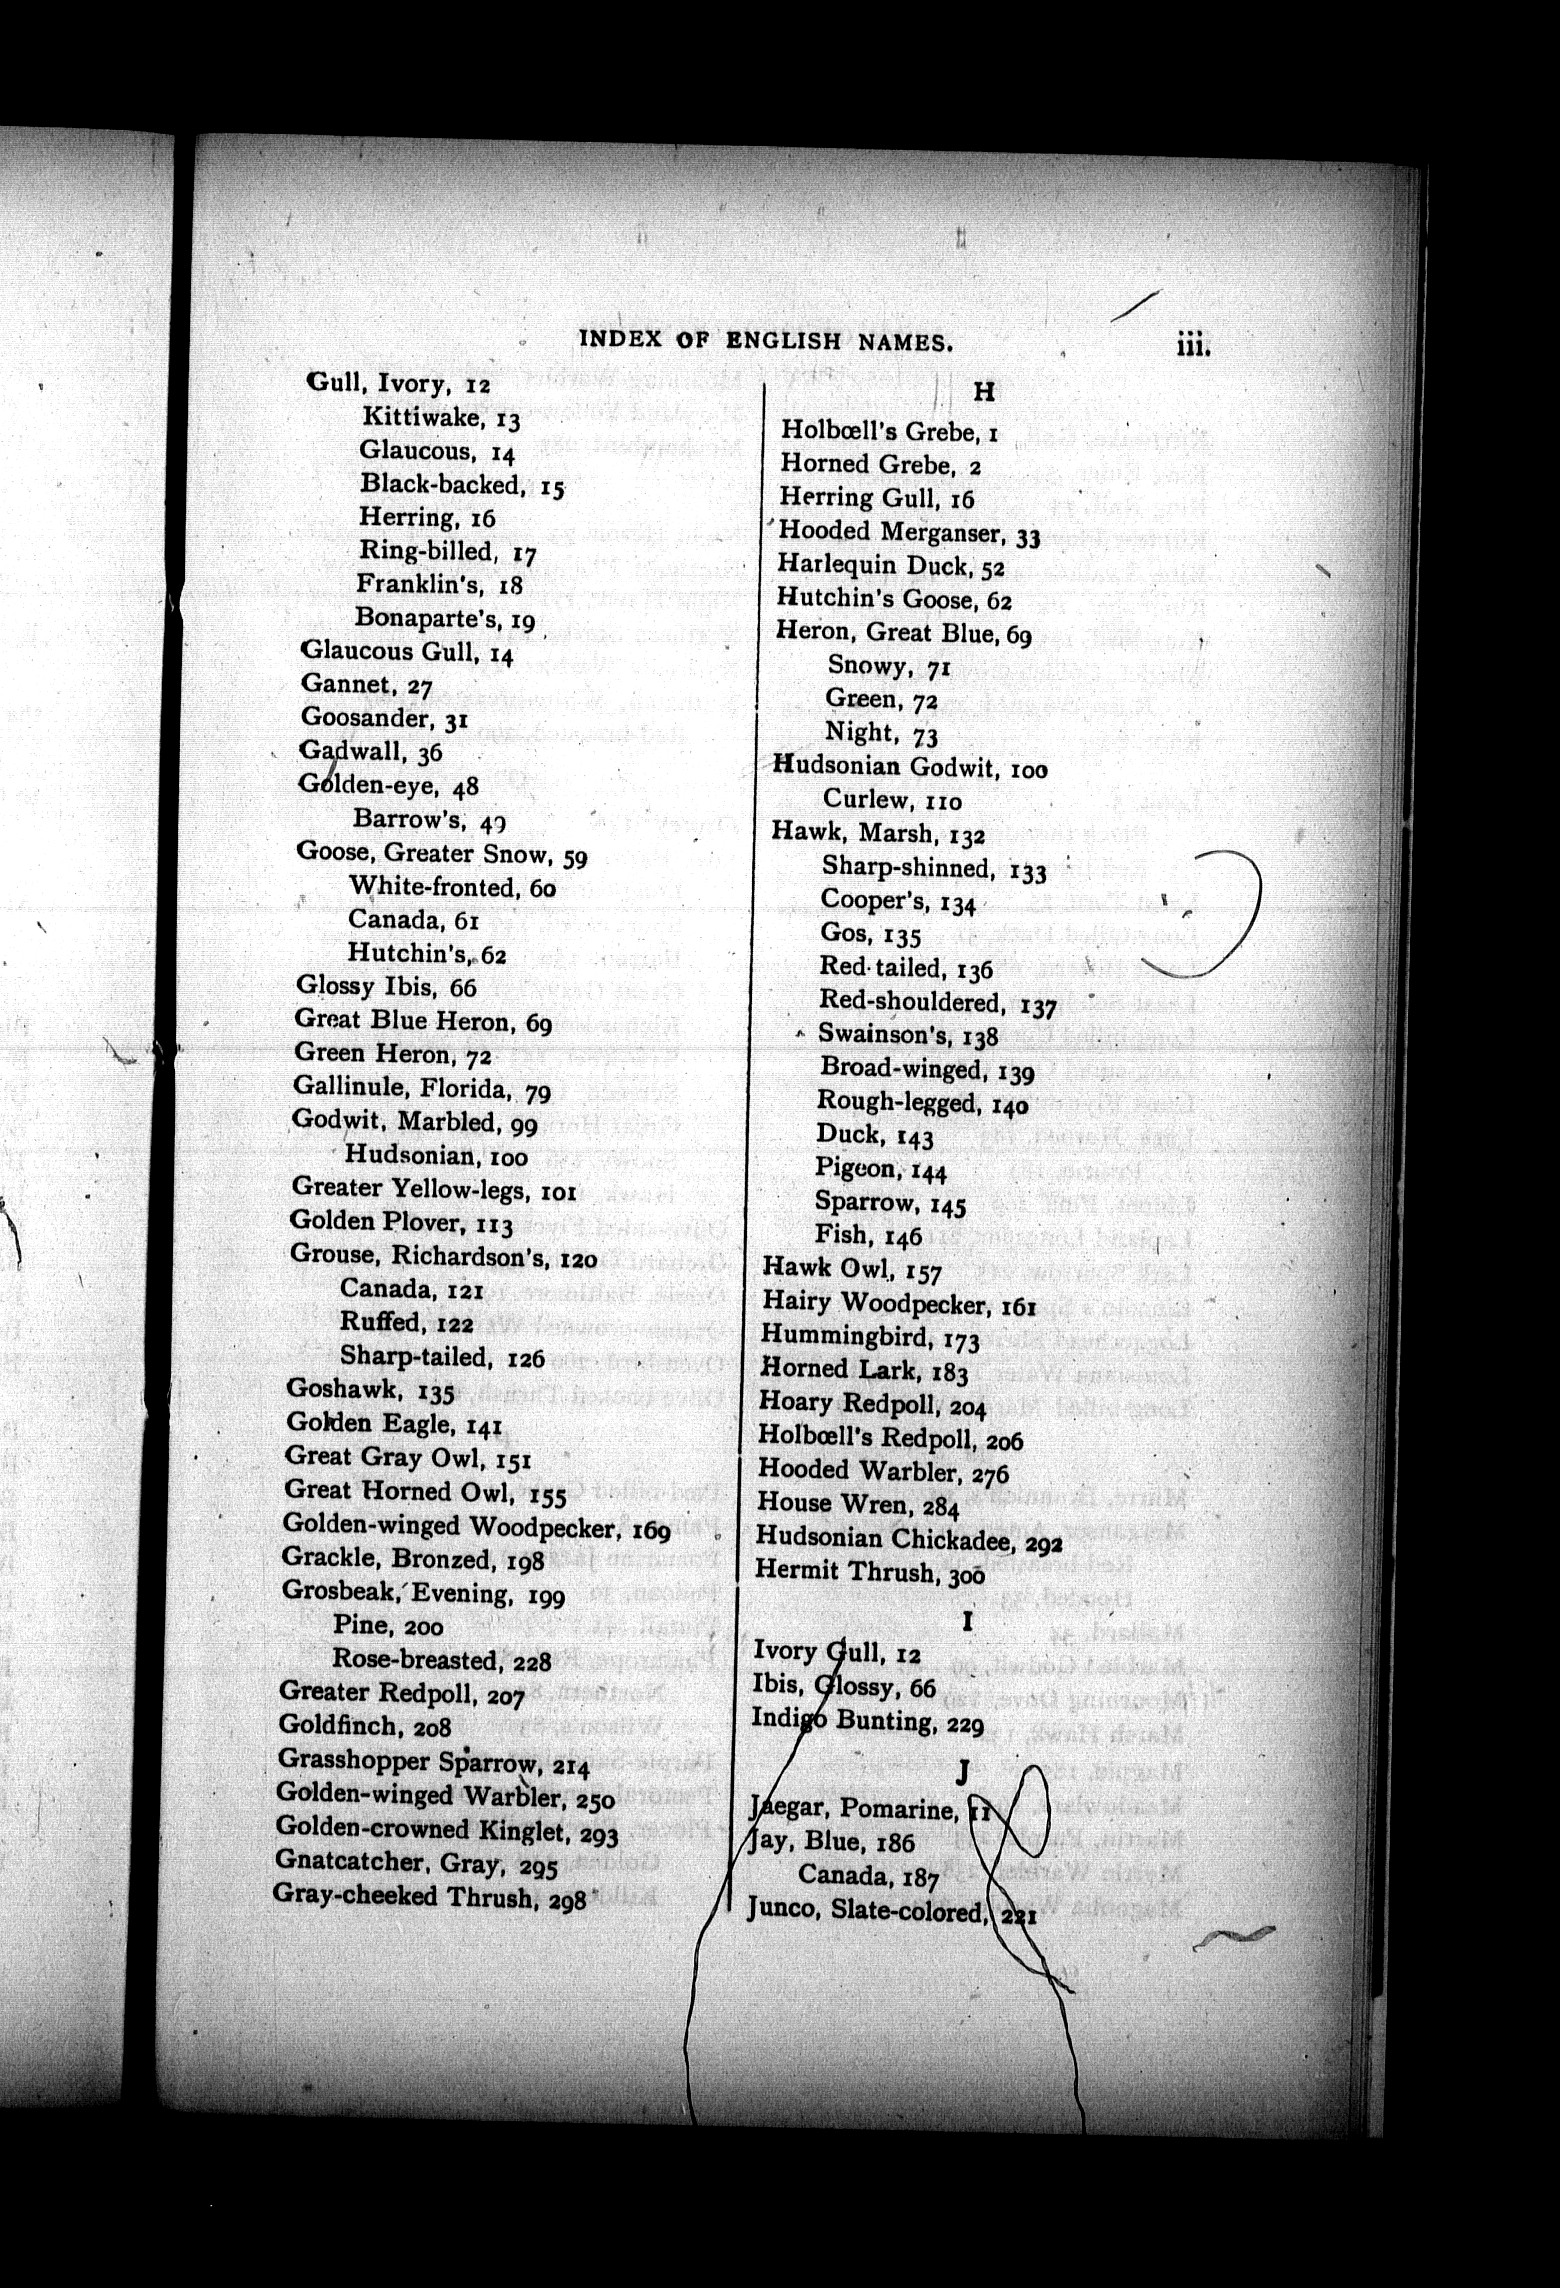 INDEX OF ENGLISH NAMES. iii.
Gull, Ivory, 12
Kittiwake, 13
Glaucous, 14
Black-backed, 15
Herring, 16
Ring-billed, 17
Franklin's, 18
Bonaparte's, 19
Glaucous Gull, 14
Gannet, 27
Goosander, 31
Gadwall, 36
Golden-eye, 48
Barrow's, 49
Goose, Greater Snow, 59
White-fronted, 60
Canada, 61
Hutchin's, 62
Glossy Ibis, 66
Great Blue Heron, 69
Green Heron, 72
Gallinule, Florida, 79
Godwit, Marbled, 99
Hudsonian, 100
Greater Yellow-legs, 101
Golden Plover, 113
Grouse, Richardson's, 120
Canada, 121
Ruffed, 122
Sharp-tailed, 126
Goshawk, 135
Golden Eagle, 141
Great Gray Owl, 151
Great Horned Owl, 155
Golden-winged Woodpecker, 169
Grackle, Bronzed, 198
Grosbeak, Evening, 199
Pine, 200
Rose-breasted, 228
Greater Redpoll, 207
Goldfinch, 208
Grasshopper Sparrow, 214
Golden-winged Warbler, 250
Golden-crowned Kinglet, 293
Gnatcatcher, Gray, 295
Gray-cheeked Thrush, 298
H
Holbœll's Grebe, 1
Horned Grebe, 2
Herring Gull, 16
Hooded Merganser, 33
Harlequin Duck, 52
Hutchin's Goose, 62
Heron, Great Blue, 69
Snowy, 71
Green, 72
Night, 73
Hudsonian Godwit, 100
Curlew, 110
Hawk, Marsh, 132
Sharp-shinned, 133
Cooper's, 134
Gos, 135
Red-tailed, 136
Red-shouldered, 137
Swainson's, 138
Broad-winged, 139
Rough-legged, 140
Duck, 143
Pigeon, 144
Sparrow, 145
Fish, 146
Hawk Owl, 157
Hairy Woodpecker, 161
Hummingbird, 173
Horned Lark, 183
Hoary Redpoll, 204
Holbœll's Redpoll, 206
Hooded Warbler, 276
House Wren, 284
Hudsonian Chickadee, 292
Hermit Thrush, 300
I
Ivory Gull, 12
Ibis, Glossy, 66
Indigo Bunting, 229
J
Jaegar, Pomarine, 11
Jay, Blue, 186
Canada, 187
Junco, Slate-colored, 221